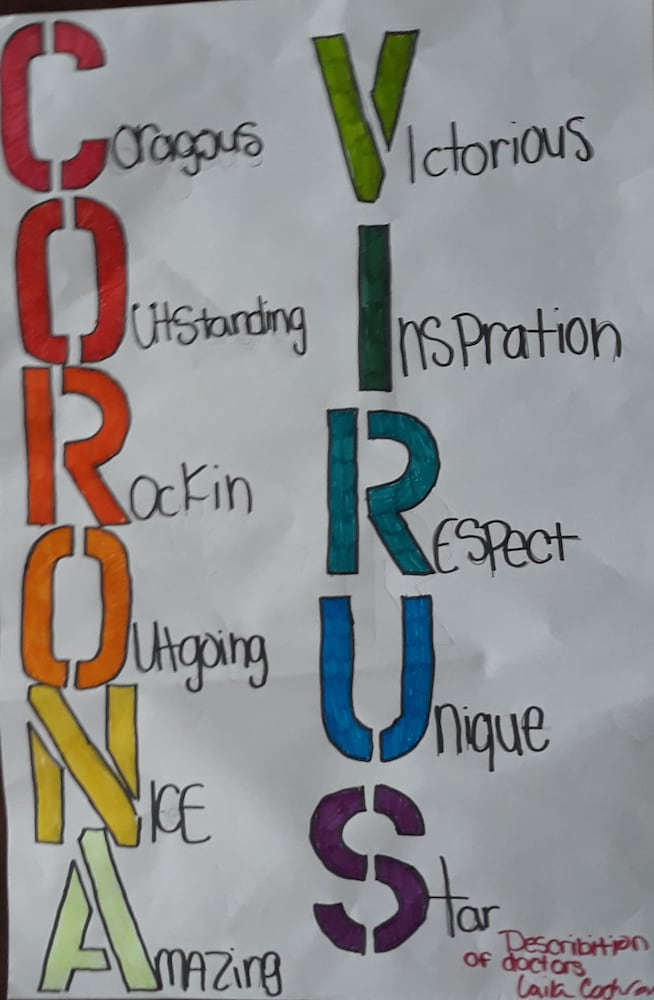 Coragous
Outstanding
Rockin
Outgoing
NICE
Amazing
Victorious
Inspration
RESPect
Unique
Star
Describition
of doctors
Laila Cochran